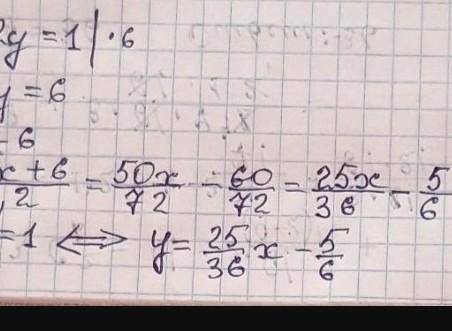 2y = 1 | · 6
y = 6
- 6
x + 6 / ,2 = 50x / 72 - 60 / 72 = 25x / 36 - 5 / 6
= 1 ⟺ y = 25/36 x - 5/6